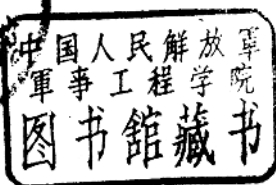 中国人民解放軍
軍事工程学院
图书館藏书